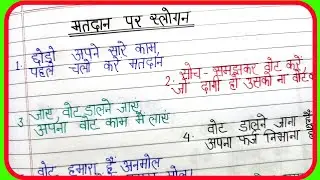 मतदान पर स्लोगन
1. छोड़ो अपने सारे काम,
पहले चलो करे मतदान
2. सोच - समझकर वोट करो,
जो दागी हो उसको ना वोट
3. जाएं वोट डालने जाएं
अपना वोट काम में लाएं
4. वोट डालने जाना है
अपना फर्ज निभाना है
वोट हमारा है अनमोल